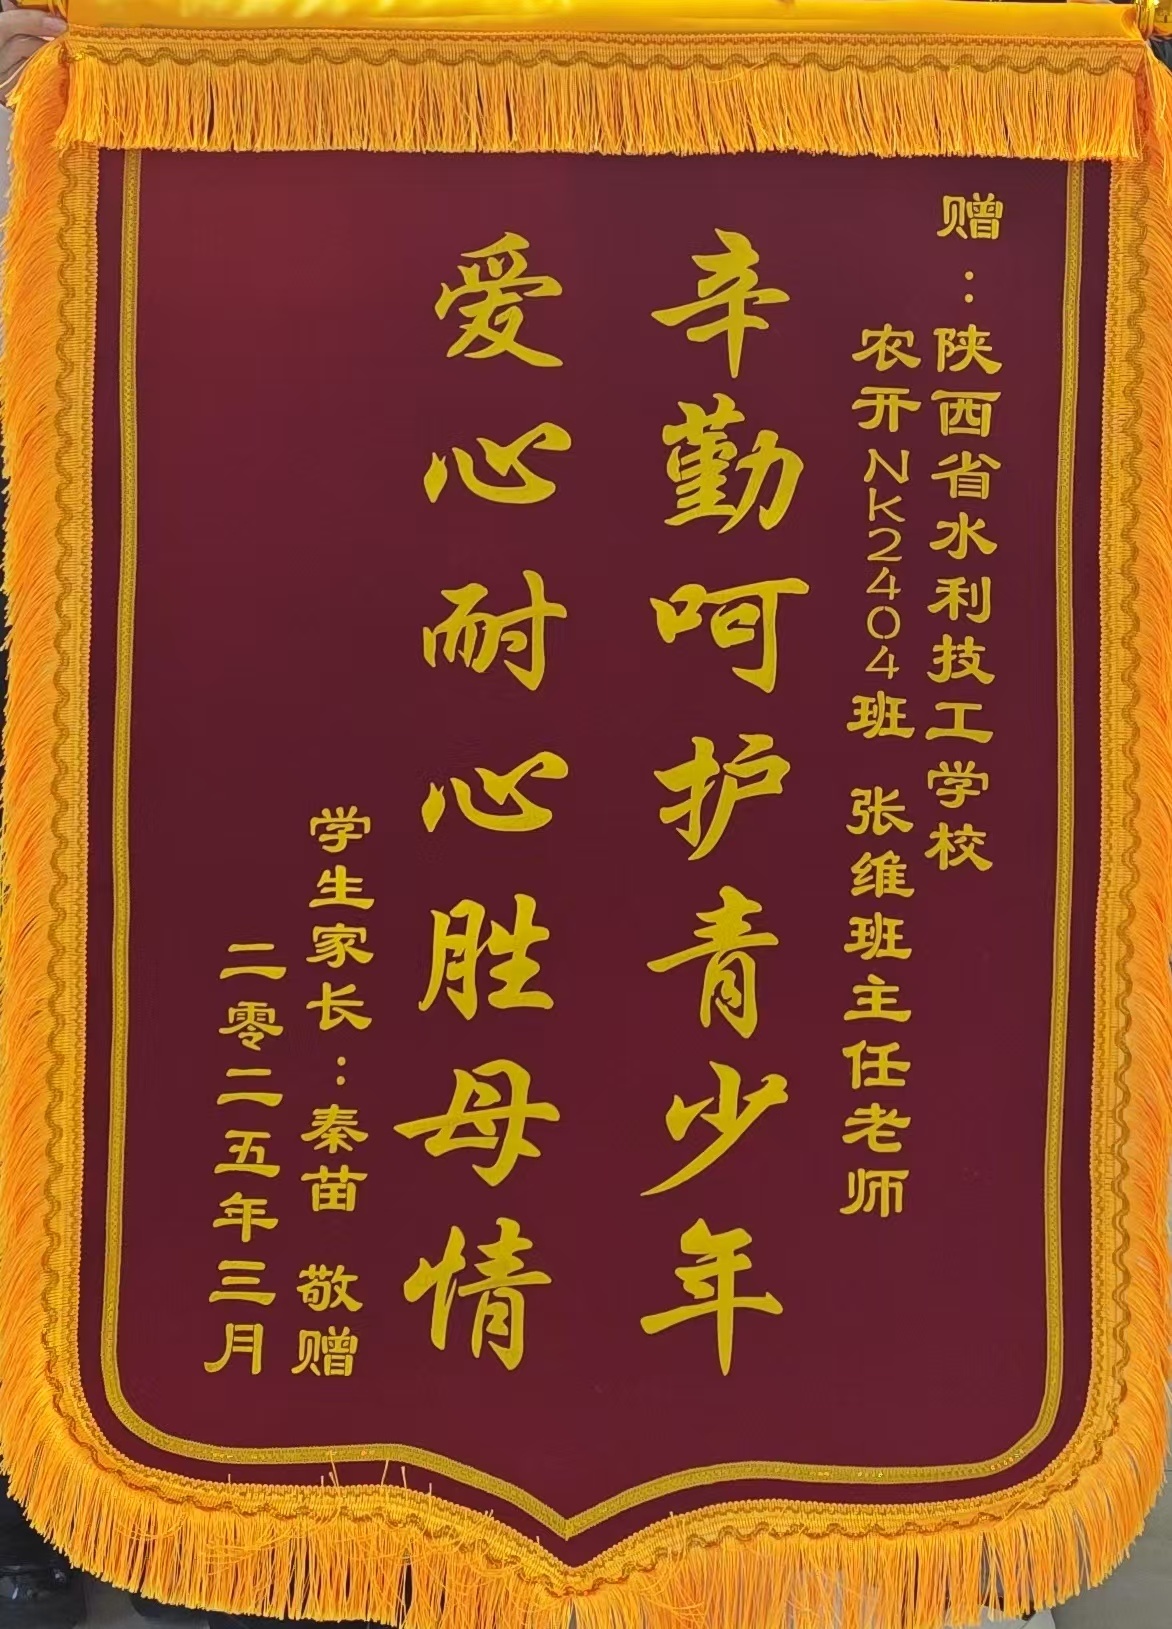 赠：陕西省水利技工学校
农开Nk2404班 张维班主任老师
辛勤呵护青少年
爱心耐心胜母情
学生家长：秦苗 敬赠
二零二五年三月